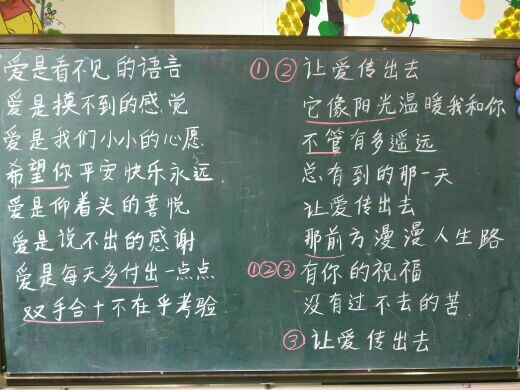 爱是看不见的语言
爱是摸不到的感觉
爱是我们小小的心愿
希望你平安快乐永远
爱是仰着头的喜悦
爱是说不出的感谢
爱是每天多付出一点点
双手合十不在乎考验
①②让爱传出去
它像阳光温暖我和你
不管有多遥远
总有到的那一天
让爱传出去
那前方漫漫人生路
①②③有你的祝福
没有过不去的苦
③让爱传出去